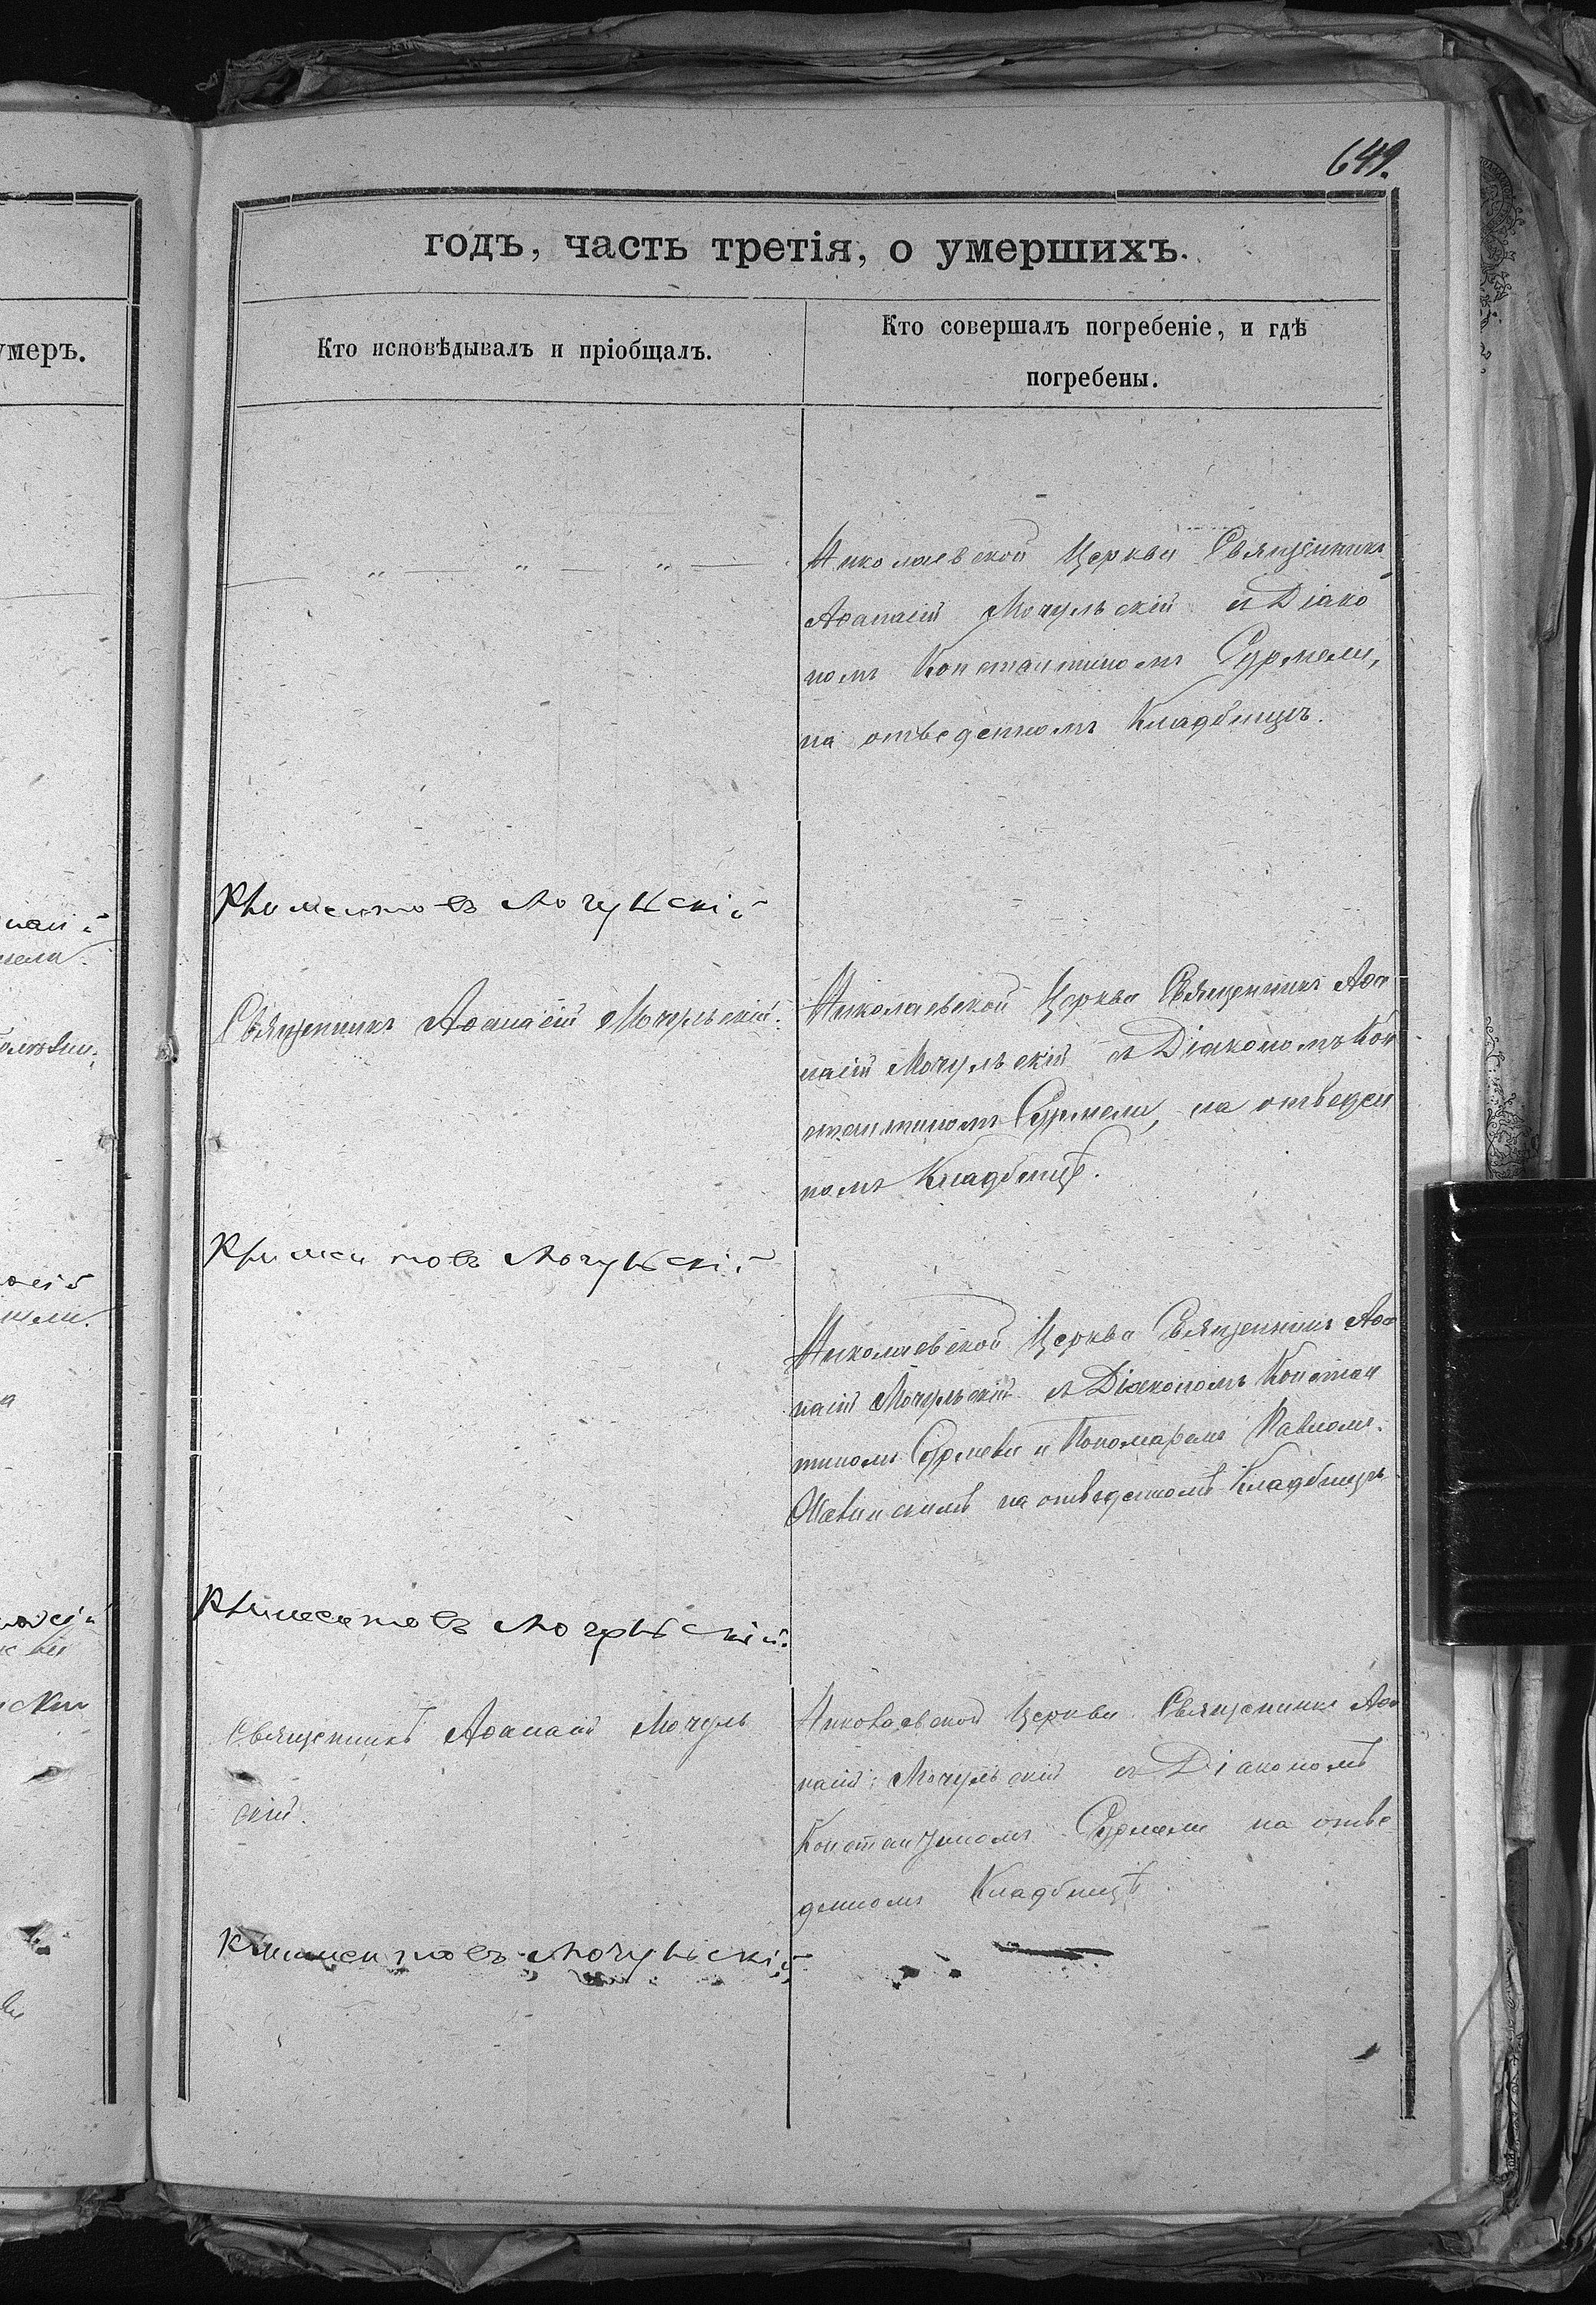 649.
годъ, часть третія, о умершихъ.
умеръ.
Кто исповѣдывалъ и пріобщалъ.
Кто совершалъ погребеніе, и гдѣ
погребены.
— „ — „ — „ —
Николаевской Церкви Священникъ
Аѳанасій Мочульскій съ Діако
номъ Константиномъ Сурмели,
на отведенномъ Кладбищѣ.
Мочульскій
Священникъ Аѳанасій Мочульскій.
Николаевской Церкви Священникъ Аѳа
насій Мочульскій съ Діакономъ Кон
стантиномъ Сурмели, на отведен
номъ Кладбищѣ.
Мочульскій
Николаевской Церкви Священникъ Аѳа
насій Мочульскій съ Діакономъ Констан
тиномъ Сурмели и Пономаремъ Павломъ
на отведенномъ Кладбищѣ
Мочульскій.
Священникъ Аѳанасій Мочуль
скій.
Николаевской Церкви Священникъ Аѳа
насій Мочульскій съ Діакономъ
Константиномъ Сурмели на отве
денномъ Кладбищѣ
Мочульскій